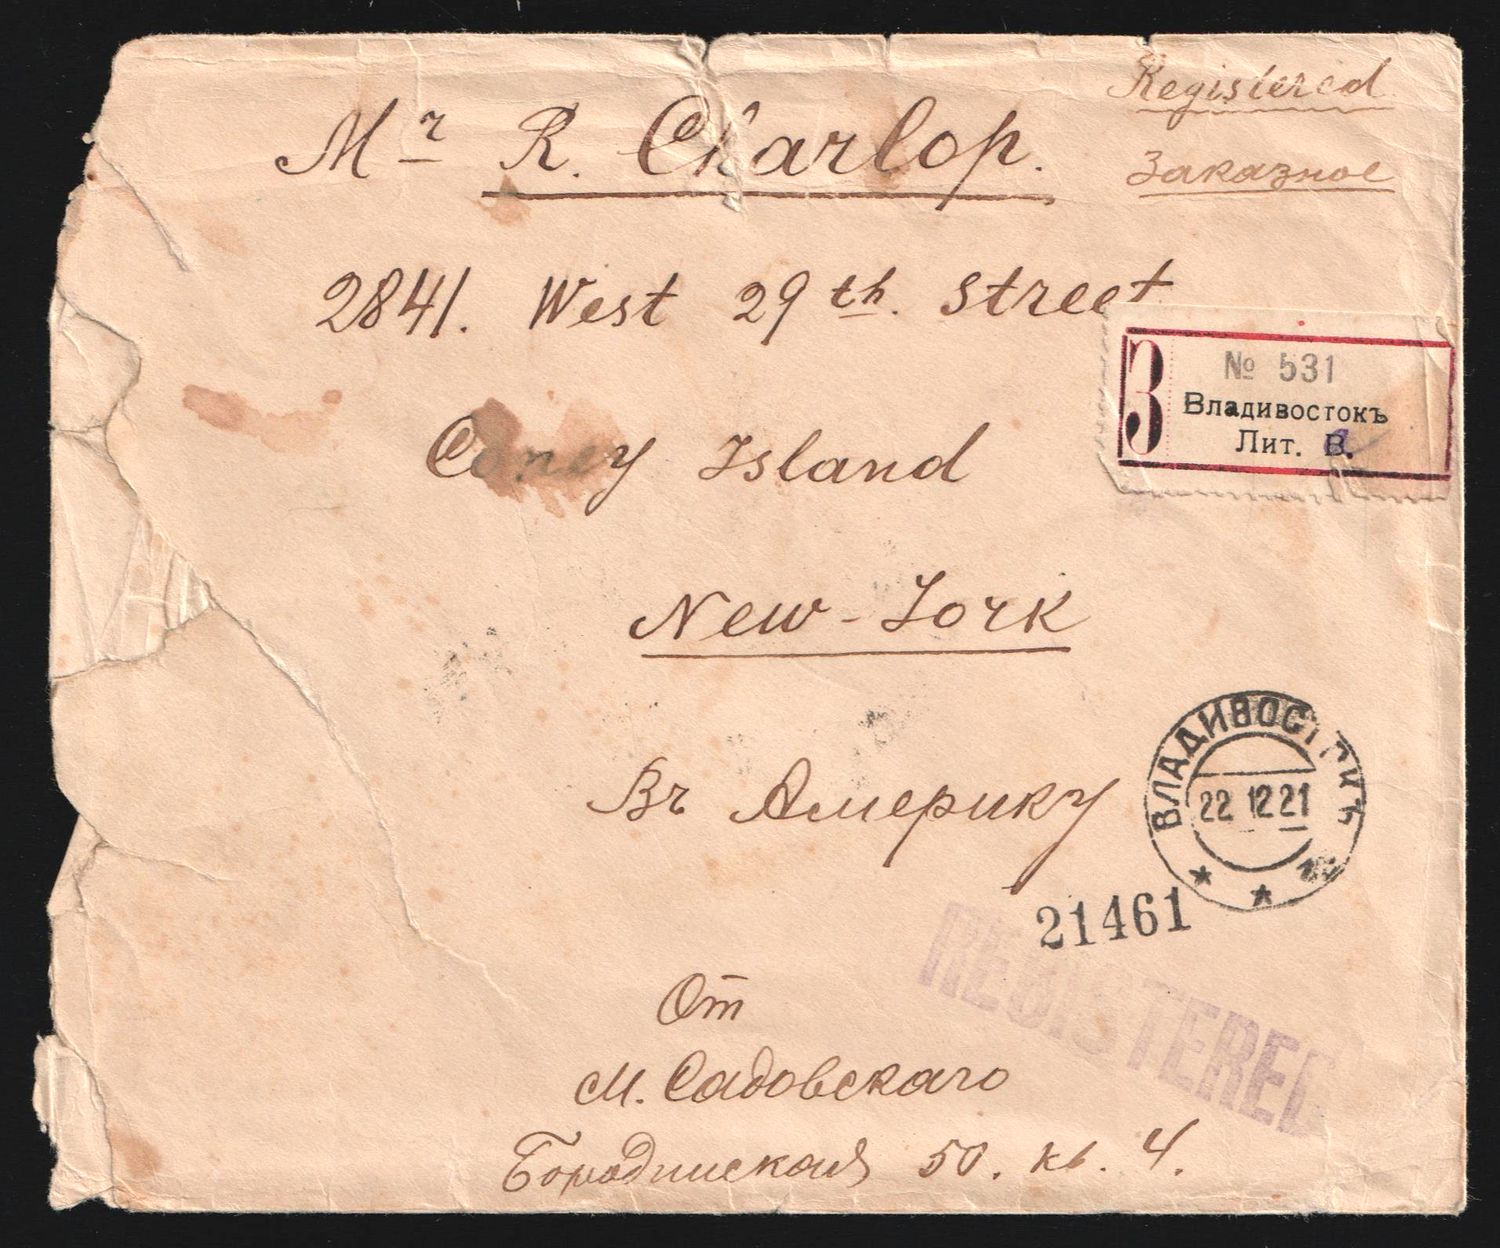 Registered
Заказное
Mr R. Charlop.
2841. West 29th. Street
Coney Island
New-York
Въ Америку
З
№ 531
Владивостокъ
Лит. В.
ВЛАДИВОСТОКЪ
22 12 21
21461
REGISTERED
От
М. Садовскаго
Бородинская 50. кв. 4.